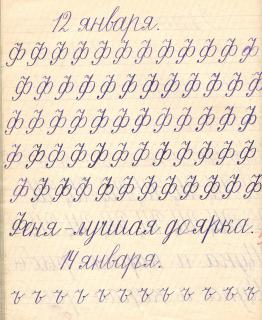 12 января.
Ф Ф Ф Ф Ф Ф Ф Ф Ф Ф Ф Ф
Ф Ф Ф Ф Ф Ф Ф Ф Ф Ф Ф
Ф Ф Ф Ф Ф Ф Ф Ф Ф Ф Ф
Ф Ф Ф Ф Ф Ф Ф Ф Ф Ф Ф
Ф Ф Ф Ф Ф Ф Ф Ф Ф Ф Ф
Феня - лучшая доярка.
14 января.
ъ ъ ъ ъ ъ ъ ъ ъ ъ ъ ъ